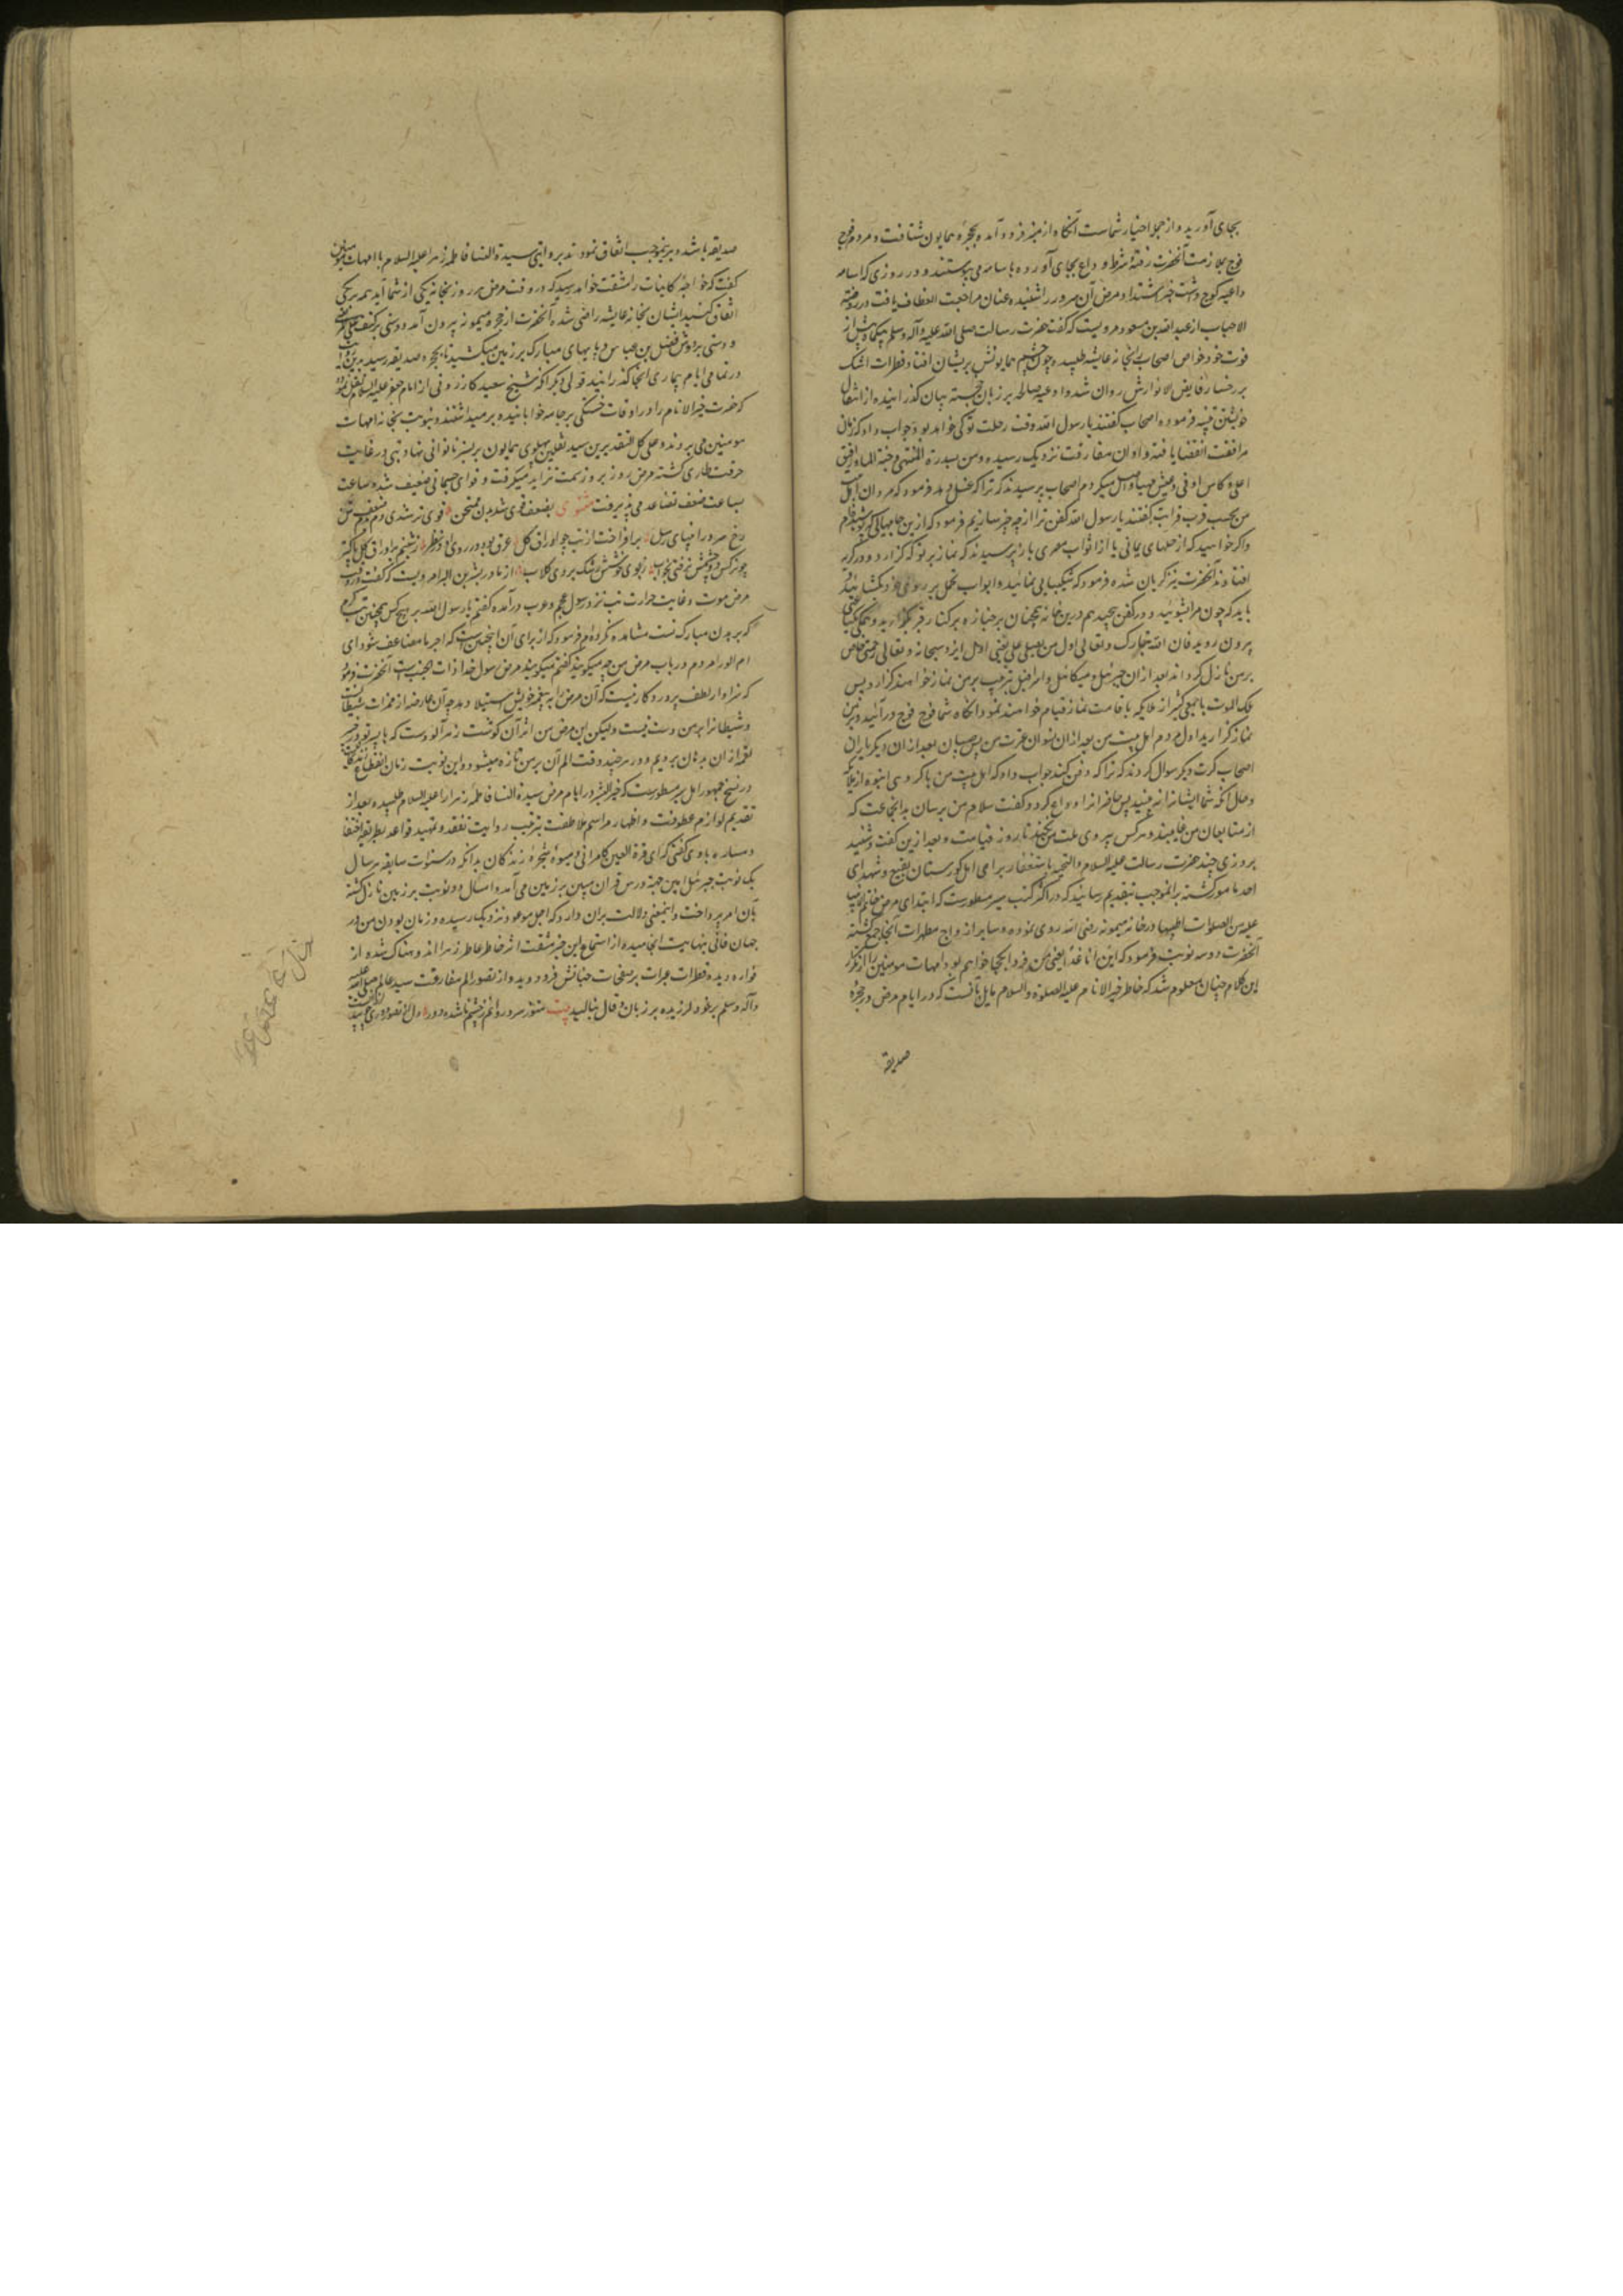 بجای آورید و از جمله اخیار شماست آنگاه از منبر فرود آمد و بحجره همایون شتافت و مردم فوج
فوج بملازمت آنحضرت رفته شرط وداع بجای آورده باسامه می پیوستند و در روزی که اسامه
داعیه کوچ داشت خبر اشتداد مرض آن سرور را شنیده عنان مراجعت انعطاف یافت در روضة
الاحباب از عبدالله بن مسعود مرویست که گفت حضرت رسالت صلی الله علیه وآله وسلم بیکماه پیش از
فوت خود خواص اصحاب را بخانه عایشه طلبید و چون چشم همایونش بریشان افتاد قطرات اشک
بر رخسار فایض الانوارش روان شد و ادعیه صالحه بر زبان خجسته بیان گذرانیده از انتقال
خویشتن تنبیه فرمود اصحاب گفتند یا رسول الله وقت رحلت تو کی خواهد بود جواب داد که زمان
مرافقت انقضا یافته و اوان مفارقت نزدیک رسیده و من بسدرة المنتهی و جنة الماوا و رفیق
اعلی و کاس اوفی و عیش مهنا واصل میگردم اصحاب پرسیدند که ترا که غسل دهد فرمود که مردان اهل بیت
من بحسب قرب قرابت گفتند یا رسول الله کفن ترا از چه چیز سازیم فرمود که ازین جامهائی که پوشیده ام
و اگر خواهید که از حلهای یمانی یا از اثواب مصری پرسیدند که نماز بر تو که گزارد و در گریه
افتادند آنحضرت نیز گریان شده فرمود که شکیبایی نمائید و ابواب تحمل بر روی خود بگشائید
باید که چون مرا بشوئید و در کفن پیچید هم درین خانه بر جنازه بر کنار قبر بگذارید و همگی
بیرون روید فان الله تبارک و تعالی اول من یصلی علی یعنی اول ایزد سبحانه و تعالی رحمتی خاص
بر من نازل گرداند بعد از ان جبرئیل و میکائیل و اسرافیل بترتیب بر من نماز خواهند گزارد پس
ملک الموت با جمعی کثیر از ملایکه باقامت نماز قیام خواهند نمود انگاه شما فوج فوج درآئید و بر من
نماز گزارید اول مردم اهل بیت من بعد از ان نسوان عترت من پس صبیان بعد از ان دیگر یاران
اصحاب کرت دیگر سوال کردند که ترا که دفن کند جواب داد که اهل بیت من با گروهی انبوه از ملایکه
و حال آنکه شما ایشانرا نه بینید پس حاضرانرا وداع کرد و گفت سلام من برسان بدانجماعت که
از متابعان من غایبند و هر کس پیروی ملت من کند تا روز قیامت و بعد ازین گفت و شنید
بروزی چند حضرت رسالت علیه السلام و التحیه باستغفار برای اهل گورستان بقیع و شهدای
احد مامور گشته برانموجب بتقدیم رسانید که در اکثر کتب سیر مسطورست که ابتدای مرض خاتم الانبیا
علیه من الصلوات اطیبها در خانه میمونه رضی الله روی نموده و سایر ازواج مطهرات آنجا جمع گشته
آنحضرت دو سه نوبت فرمود که این انا غدا یعنی من فردا بکجا خواهم بود امهات مومنین را از تکرار
این کلام چنان معلوم شد که خاطر خیر الانام علیه الصلوة والسلام مایل بآنست که در ایام مرض در حجره
صدیقه
صدیقه باشد و برینموجب اتفاق نمودند بروایتی سیدة النسا فاطمه زهرا علیها السلام با امهات مومنین
گفت که خواجه کاینات را مشقت خواهد رسید که در وقت مرض هر روز بخانه یکی از شما آید همه بر یکی
اتفاق کنید ایشان بخانه عایشه راضی شده آنحضرت از حجره میمونه بیرون آمد و دستی بر کتف علی مرتضی
و دستی بر دوش فضل بن عباس و پایهای مبارک بر زمین میکشید تا بحجره صدیقه رسید
و تمامی ایام بیماری آنجا گذرانید قولی دیگر آنکه شیخ سعید کازرونی از امام جعفر علیه السلام نقل نموده
که حضرت خیر الانام را در اوقات خستگی بر جامه خوابانیده برمیداشتند و بنوبت بخانه امهات
مومنین می بردند و علی کل التقدیرین سید ثقلین پهلوی همایون بر بستر ناتوانی نهاد و تبی در غایت
حرقت طاری گشته مرض روز بروز سمت تزاید میگرفت و قوای جسمانی ضعیف شده ساعت
بساعت ضعف تصاعد می پذیرفت مثنوی بضعف قوی شد بدن ممتحن قوی تر شدی دم بدم ضعف تن
رخ سرور انبیای رسل برافروخت از تب چو اوراق گل عرق بود در روی او در نظر ز شبنم بر اوراق گل پاکتر
چو نرگس دو چشمش نرفتی بخواب ز بوی خوشش مشک بردی گلاب از مادر بشر بن البرا مرویست که گفت در وقت
مرض موت و غایت حرارت تب نزد رسول عجم و عرب درآمده گفتم یا رسول الله بر هیچ کس چنین تب گرم
که بر بدن مبارک تست مشاهده نکرده ام فرمود که از برای آن اینچنین است که اجر ما مضاعف شود ای
ام البرا مردم در باب مرض من چه میگویند گفتم میگویند مرض رسول خدا ذات الجنب است آنحضرت فرمود
که سزاوار لطف پروردگار نیست که آن مرض را بر پیغمبر خویش استیلا دهد چه آن عارضه از همزات شیطانست
و شیطانرا بر من دست نیست ولیکن این مرض من اثر آن گوشت زهرآلودست که با پسر تو در خیبر
لقمه از ان بدهان بردیم و در هر چند وقت الم آن بر من تازه میشود و این نوبت زمان انقطاع
در نسخ جمهور اهل سیر مسطورست که خیر البشر در ایام مرض سیدة النسا فاطمه زهرا را علیها السلام طلبیده بعد از
تقدیم لوازم عطوفت و اظهار مراسم ملاطفت بترتیب روایت تفقد و تمهید قواعد بطریق اختفا
و مساره با وی گفتی که ای قرة العین کامرانی و میوه شجره زندگانی بدانکه در سنوات سابقه هر سال
یک نوبت جبرئیل امین جهة درس قرآن مبین بر زمین می آمد و امسال دو نوبت بر زمین نازل گشته
بآن امر پرداخت و اینمعنی دلالت بران دارد که اجل موعود نزدیک رسیده و زمان بودن من در
جهان فانی بنهایت انجامیده از استماع این خبر مشقت اثر خاطر عاطر زهرا اندوهناک شده از
فواره دیده قطرات عبرات بر صفحات جنانش فرو دوید و از تصور الم مفارقت سید عالم صلی الله علیه
وآله وسلم بر خود لرزیده بر زبان قال بنالید بیت هنوز سرو روانم ز چشم ناشده دور دل از تصور دوری چو بید لرزانست